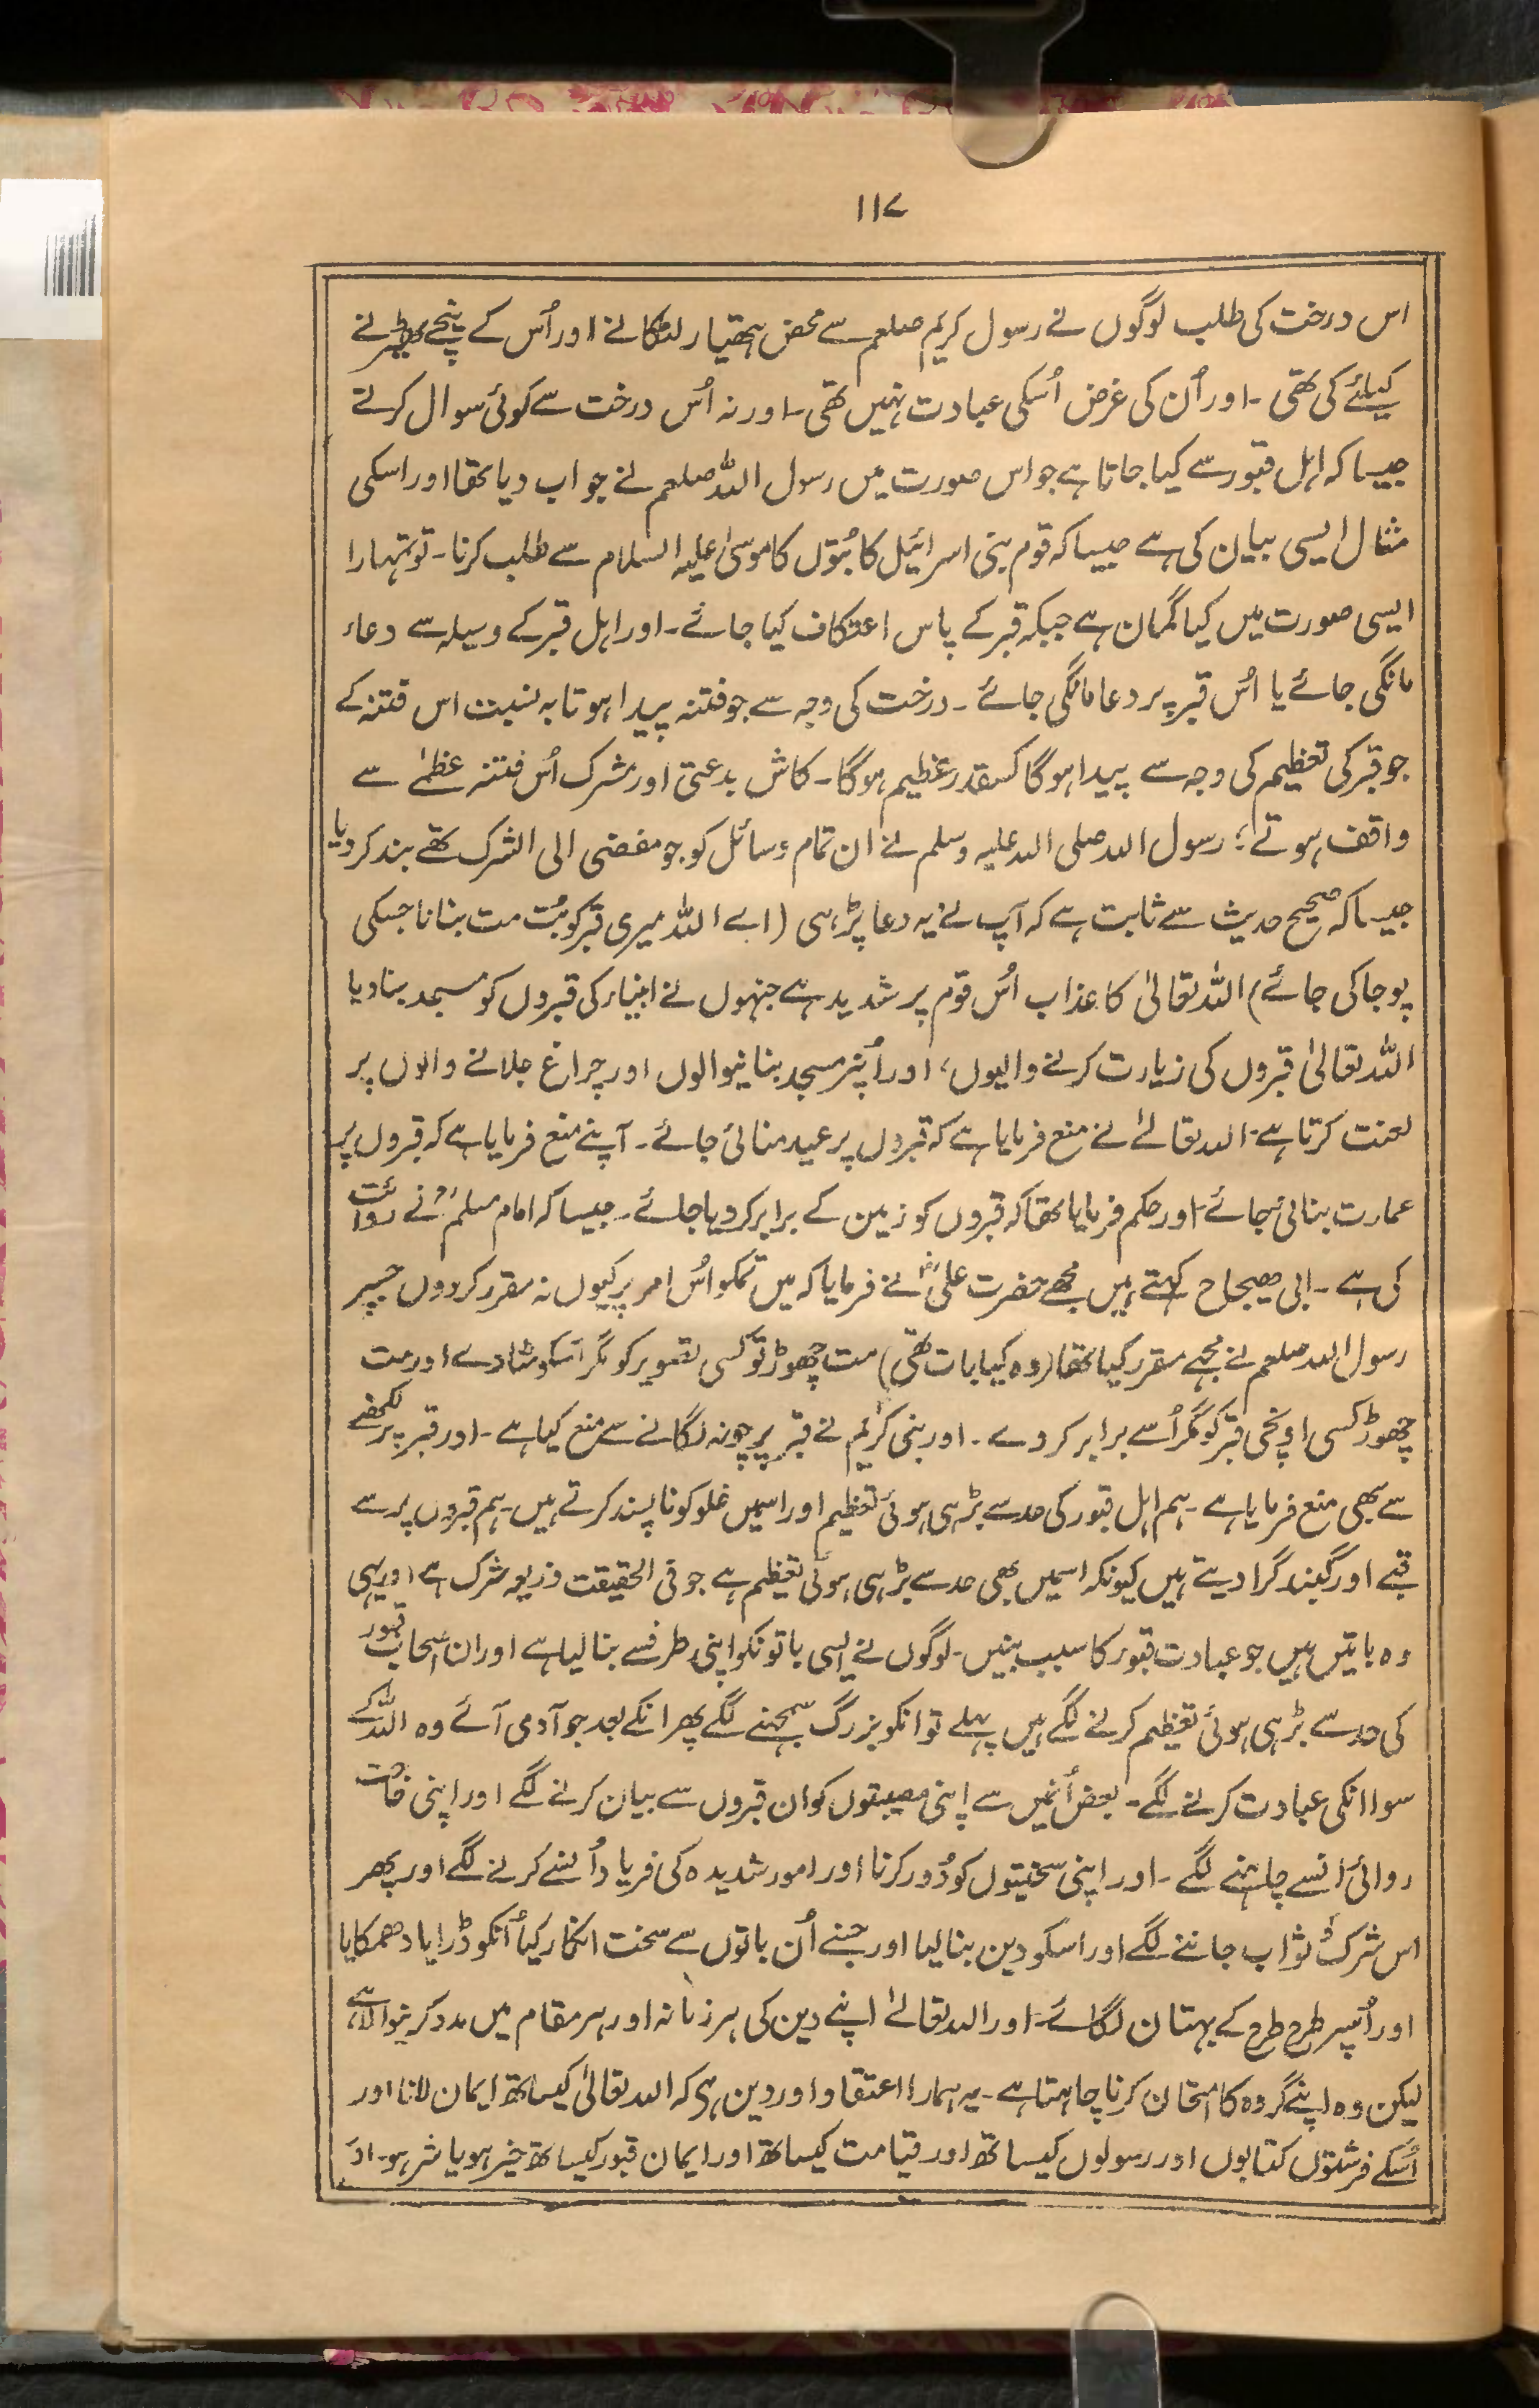 ۱۱۷
اس درخت کی طلب لوگوں نے رسول کریم صلعم سے محض ہتھیار لٹکانے اور اُس کے نیچے ٹھیرنے
کیلئے کی تھی ۔ اور اُن کی غرض اُسکی عبادت نہیں تھی ۔ اور نہ اُس درخت سے کوئی سوال کرتے
جیسا کہ اہل قبور سے کیا جاتا ہے جو اس صورت میں رسول اللہ صلعم نے جواب دیا تھا اور اسکی
مثال ایسی بیان کی ہے جیسا کہ قوم بنی اسرائیل کا بُتوں کا موسیٰ علیہ السلام سے طلب کرنا ۔ تو تمہارا
ایسی صورت میں کیا گمان ہے جبکہ قبر کے پاس اعتکاف کیا جائے ۔ اور اہل قبر کے وسیلہ سے دعاء
مانگی جائے یا اُس قبر پر دعا مانگی جائے ۔ درخت کی وجہ سے جو فتنہ پیدا ہوتا بہ نسبت اس فتنہ کے
جو قبر کی تعظیم کی وجہ سے پیدا ہوگا کسقدر عظیم ہوگا ۔ کاش بدعتی اور مشرک اُس فتنہ عظمےٰ سے
واقف ہوتے ؛ رسول اللہ صلی اللہ علیہ وسلم نے ان تمام وسائل کو جو مفضی الی الشرک تھے بند کر دیا
جیسا کہ صحیح حدیث سے ثابت ہے کہ آپ نے یہ دعا پڑہی (اے اللہ میری قبر کو بُت مت بنانا جسکی
پوجا کی جائے) اللہ تعالیٰ کا عذاب اُس قوم پر شدید ہے جنہوں نے انبیاء کی قبروں کو مسجد بنا دیا
اللہ تعالیٰ قبروں کی زیارت کرنے والیوں ، اور اُنپر مسجد بنانیوالوں اور چراغ جلانے والوں پر
لعنت کرتا ہے ۔ اللہ تعالےٰ نے منع فرمایا ہے کہ قبروں پر عید منائی جائے ۔ آپنے منع فرمایا ہے کہ قبروں پر
عمارت بنائی جائے ۔ اور حکم فرمایا تھا کہ قبروں کو زمین کے برابر کر دیا جائے ۔ جیسا کہ امام مسلم ؒ نے روائت
کی ہے ۔ ابی ھیجاح کہتے ہیں مجھے حضرت علی ؓ نے فرمایا کہ میں تمکو اُس امر پر کیوں نہ مقرر کردوں جسپر
رسول اللہ صلعم نے مجہے مقرر کیا تھا (وہ کیا بات تھی) مت چھوڑ تو کسی تصویر کو مگر اسکو مٹا دے اور مت
چھوڑ کسی اونچی قبر کو مگر اُسے برابر کر دے ۔ اور نبی کریم نے قبر پر چونہ لگانے سے منع کیا ہے ۔ اور قبر پر لکھنے
سے بھی منع فرمایا ہے ۔ ہم اہل قبور کی حد سے بڑہی ہوئی تعظیم اور اسمیں غلو کو ناپسند کرتے ہیں ۔ ہم قبروں پر سے
قبے اور گنبد گرا دیتے ہیں کیونکہ اسمیں بھی حد سے بڑہی ہوئی تعظیم ہے جو فی الحقیقت ذریعہ شرک ہے اور یہی
وہ باتیں ہیں جو عبادت قبور کا سبب بنیں ۔ لوگوں نے ایسی باتونکو اپنی طرفسے بنا لیا ہے اور ان اصحاب قبور
کی حد سے بڑہی ہوئی تعظیم کرنے لگے ہیں پہلے تو انکو بزرگ سمجہنے لگے پھر انکے بعد جو آدمی آئے وہ اللہ کے
سوا انکی عبادت کرنے لگے ۔ بعض اُنمیں سے اپنی مصیبتوں کو ان قبروں سے بیان کرنے لگے اور اپنی حاجت
روائی انسے چاہنے لگے ۔ اور اپنی سختیوں کو دُور کرنا اور امور شدیدہ کی فریاد اُنسے کرنے لگے اور پھر
اس شرک کو ثواب جاننے لگے اور اسکو دین بنا لیا اور جسنے اُن باتوں سے سخت انکار کیا اُنکو ڈرایا دھمکایا
اور اُنپر طرح طرح کے بہتان لگائے ۔ اور اللہ تعالےٰ اپنے دین کی ہر زمانہ اور ہر مقام میں مدد کرینوالا ہے
لیکن وہ اپنے گروہ کا امتحان کرنا چاہتا ہے ۔ یہ ہمارا اعتقاد اور دین ہی کہ اللہ تعالیٰ کیساتھ ایمان لانا اور
اُسکے فرشتوں کتابوں اور رسولوں کیساتھ اور قیامت کیساتھ اور ایمان قبور کیساتھ خیر ہو یا شر ہو ۔ اور